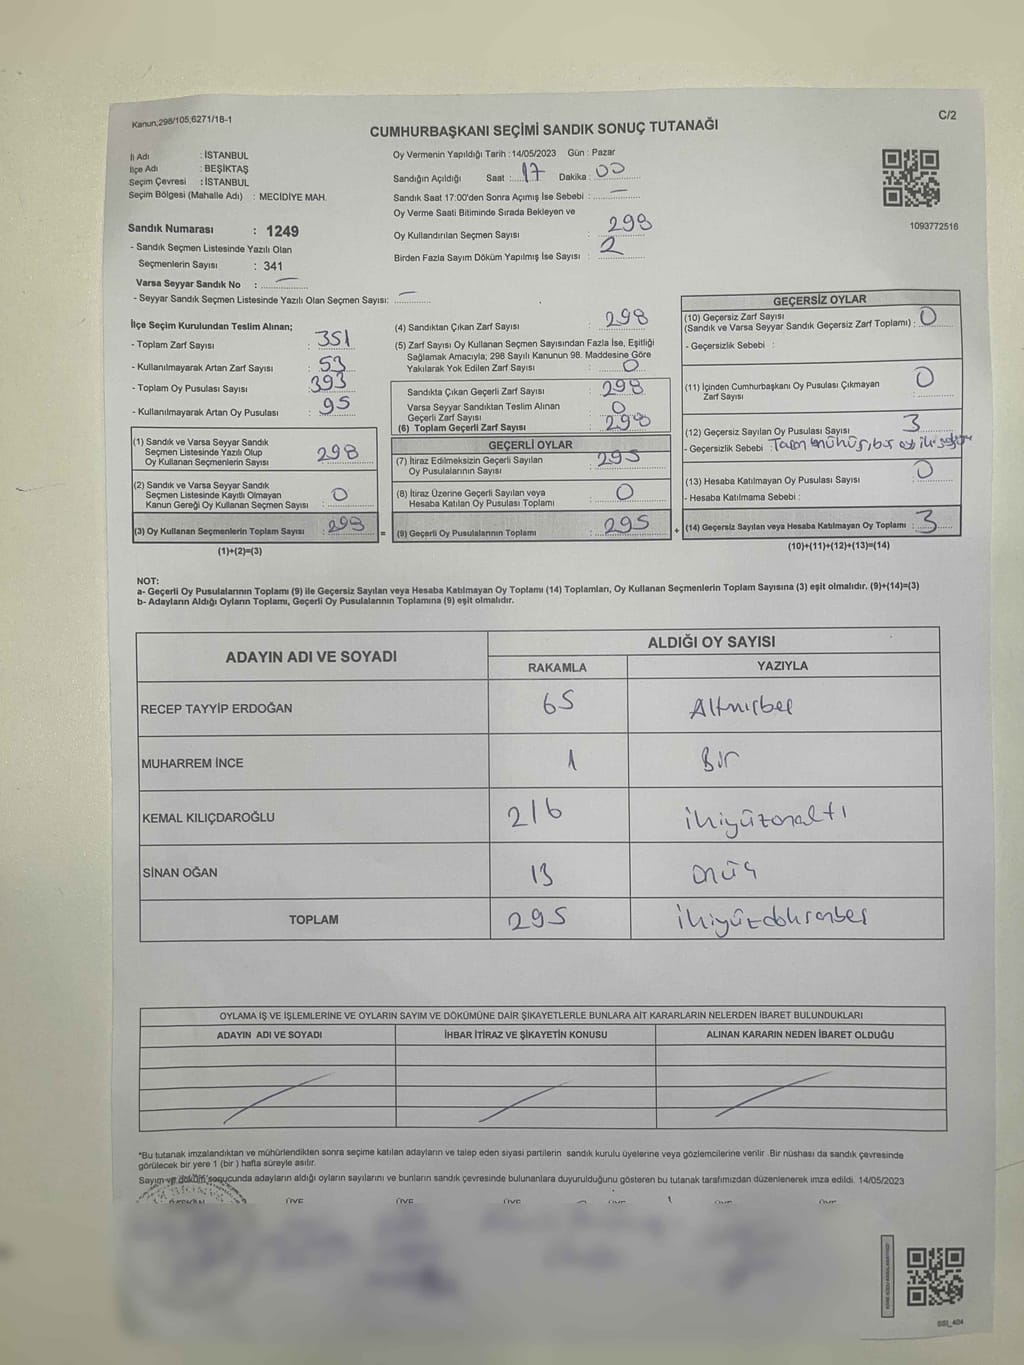 Kanun;298/105;6271/18-1
C/2
CUMHURBAŞKANI SEÇİMİ SANDIK SONUÇ TUTANAĞI
İl Adı : İSTANBUL
İlçe Adı : BEŞİKTAŞ
Seçim Çevresi : İSTANBUL
Seçim Bölgesi (Mahalle Adı) : MECİDİYE MAH.
Sandık Numarası : 1249
- Sandık Seçmen Listesinde Yazılı Olan
Seçmenlerin Sayısı : 341
Varsa Seyyar Sandık No : —
- Seyyar Sandık Seçmen Listesinde Yazılı Olan Seçmen Sayısı: —
Oy Vermenin Yapıldığı Tarih : 14/05/2023 Gün : Pazar
Sandığın Açıldığı Saat : 17 Dakika : 00
Sandık Saat 17:00'den Sonra Açımış İse Sebebi : —
Oy Verme Saati Bitiminde Sırada Bekleyen ve
Oy Kullandırılan Seçmen Sayısı : 298
Birden Fazla Sayım Döküm Yapılmış İse Sayısı : 2
1093772516
İlçe Seçim Kurulundan Teslim Alınan;
- Toplam Zarf Sayısı : 351
- Kullanılmayarak Artan Zarf Sayısı : 53
- Toplam Oy Pusulası Sayısı : 393
- Kullanılmayarak Artan Oy Pusulası : 95
(1) Sandık ve Varsa Seyyar Sandık
Seçmen Listesinde Yazılı Olup
Oy Kullanan Seçmenlerin Sayısı : 298
(2) Sandık ve Varsa Seyyar Sandık
Seçmen Listesinde Kayıtlı Olmayan
Kanun Gereği Oy Kullanan Seçmen Sayısı : 0
(3) Oy Kullanan Seçmenlerin Toplam Sayısı : 298 =
(1)+(2)=(3)
(4) Sandıktan Çıkan Zarf Sayısı : 298
(5) Zarf Sayısı Oy Kullanan Seçmen Sayısından Fazla İse, Eşitliği
Sağlamak Amacıyla; 298 Sayılı Kanunun 98. Maddesine Göre
Yakılarak Yok Edilen Zarf Sayısı : 0
Sandıkta Çıkan Geçerli Zarf Sayısı : 298
Varsa Seyyar Sandıktan Teslim Alınan
Geçerli Zarf Sayısı : 0
(6) Toplam Geçerli Zarf Sayısı : 298
GEÇERLİ OYLAR
(7) İtiraz Edilmeksizin Geçerli Sayılan
Oy Pusulalarının Sayısı : 295
(8) İtiraz Üzerine Geçerli Sayılan veya
Hesaba Katılan Oy Pusulası Toplamı : 0
(9) Geçerli Oy Pusulalarının Toplamı : 295 +
GEÇERSİZ OYLAR
(10) Geçersiz Zarf Sayısı
(Sandık ve Varsa Seyyar Sandık Geçersiz Zarf Toplamı) : 0
- Geçersizlik Sebebi :
(11) İçinden Cumhurbaşkanı Oy Pusulası Çıkmayan
Zarf Sayısı : 0
(12) Geçersiz Sayılan Oy Pusulası Sayısı : 3
- Geçersizlik Sebebi :
(13) Hesaba Katılmayan Oy Pusulası Sayısı : 0
- Hesaba Katılmama Sebebi :
(14) Geçersiz Sayılan veya Hesaba Katılmayan Oy Toplamı : 3
(10)+(11)+(12)+(13)=(14)
NOT:
a- Geçerli Oy Pusulalarının Toplamı (9) ile Geçersiz Sayılan veya Hesaba Katılmayan Oy Toplamı (14) Toplamları, Oy Kullanan Seçmenlerin Toplam Sayısına (3) eşit olmalıdır. (9)+(14)=(3)
b- Adayların Aldığı Oyların Toplamı, Geçerli Oy Pusulalarının Toplamına (9) eşit olmalıdır.
ADAYIN ADI VE SOYADI
ALDIĞI OY SAYISI
RAKAMLA YAZIYLA
RECEP TAYYİP ERDOĞAN 65 Altmışbeş
MUHARREM İNCE 1 Bir
KEMAL KILIÇDAROĞLU 216 ikiyüzonaltı
SİNAN OĞAN 13 onüç
TOPLAM 295 ikiyüzdoksanbeş
OYLAMA İŞ VE İŞLEMLERİNE VE OYLARIN SAYIM VE DÖKÜMÜNE DAİR ŞİKAYETLERLE BUNLARA AİT KARARLARIN NELERDEN İBARET BULUNDUKLARI
ADAYIN ADI VE SOYADI İHBAR İTİRAZ VE ŞİKAYETİN KONUSU ALINAN KARARIN NEDEN İBARET OLDUĞU
*Bu tutanak imzalandıktan ve mühürlendikten sonra seçime katılan adayların ve talep eden siyasi partilerin sandık kurulu üyelerine veya gözlemcilerine verilir .Bir nüshası da sandık çevresinde
görülecek bir yere 1 (bir ) hafta süreyle asılır.
Sayım ve döküm sonucunda adayların aldığı oyların sayılarını ve bunların sandık çevresinde bulunanlara duyurulduğunu gösteren bu tutanak tarafımızdan düzenlenerek imza edildi. 14/05/2023
ÜYE ÜYE ÜYE
SSI_404